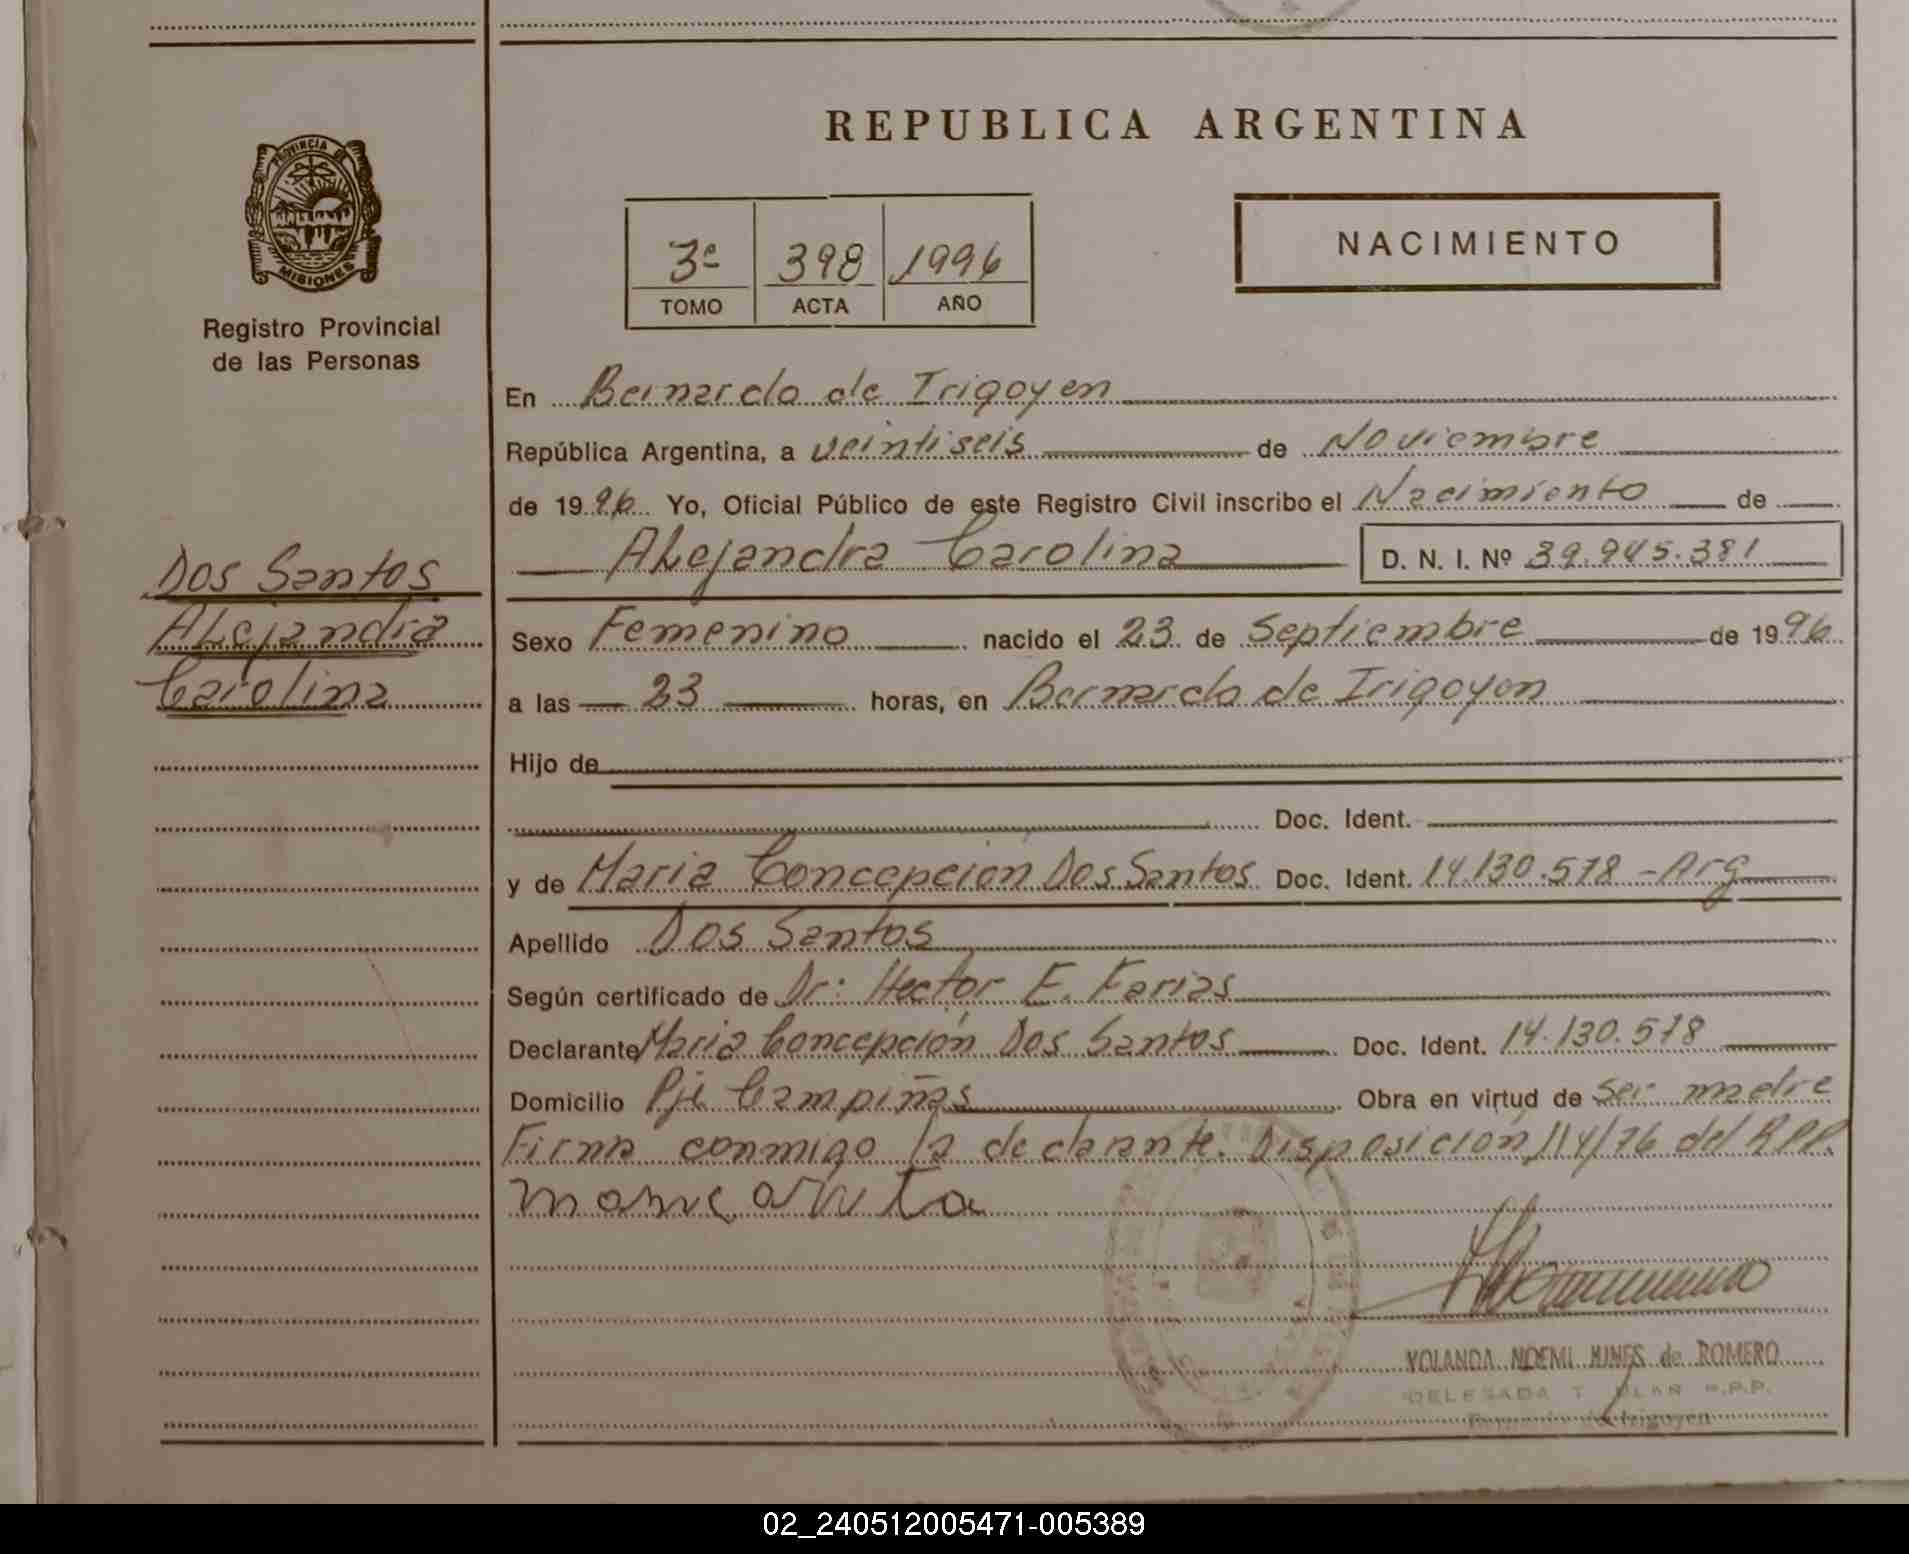 REPUBLICA ARGENTINA
PROVINCIA DE
MISIONES
Registro Provincial
de las Personas
3º 398 1996
TOMO ACTA AÑO
NACIMIENTO
Dos Santos
Alejandra
Carolina
En Bernardo de Irigoyen
República Argentina, a veintiseis de Noviembre
de 1996 Yo, Oficial Público de este Registro Civil inscribo el Nacimiento de
Alejandra Carolina D. N. I. Nº 39.945.381
Sexo Femenino nacido el 23 de Septiembre de 1996
a las 23 horas, en Bernardo de Irigoyen
Hijo de
Doc. Ident.
y de Maria Concepción Dos Santos Doc. Ident. 14.130.578 - Arg
Apellido Dos Santos
Según certificado de Dr: Hector E. Farias
Declarante Maria Concepción Dos Santos Doc. Ident. 14.130.578
Domicilio Pje Campiñas Obra en virtud de ser madre
Firma conmigo la declarante. Disposición 114/76 del R.P.P.
YOLANDA NOEMI de ROMERO
DELEGADA R.P.P.
Bernardo de Irigoyen
02_240512005471-005389